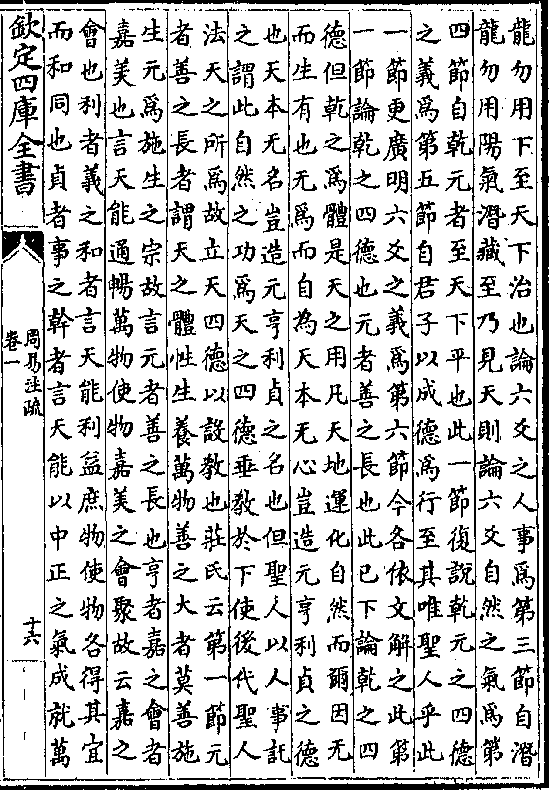 龍勿用下至天下治也論六爻之人事為第三節自潛
龍勿用陽氣潛藏至乃見天則論六爻自然之氣為第
四節自乾元者至天下平也此一節復說乾元之四德
之義為第五節自君子以成德為行至其唯聖人乎此
一節更廣明六爻之義為第六節今各依文解之此第
一節論乾之四德也元者善之長也此已下論乾之四
德但乾之為體是天之用凡天地運化自然而爾因无
而生有也无為而自為天本无心豈造元亨利貞之德
也天本无名豈造元亨利貞之名也但聖人以人事託
之謂此自然之功為天之四德垂教於下使後代聖人
法天之所為故立天四德以設教也莊氏云第一節元
者善之長者謂天之體性生養萬物善之大者莫善施
生元為施生之宗故言元者善之長也亨者嘉之會者
嘉美也言天能通暢萬物使物嘉美之會聚故云嘉之
會也利者義之和者言天能利益庶物使物各得其宜
而和同也貞者事之幹者言天能以中正之氣成就萬
欽定四庫全書
周易注疏
卷一
十六